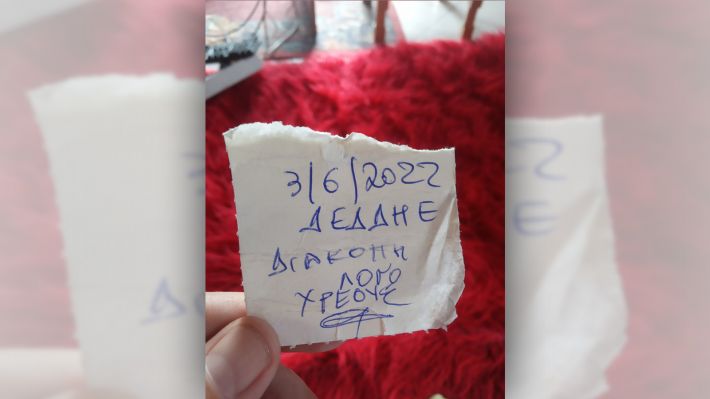 3/6/2022
ΔΕΔΔΗΕ
ΔΙΑΚΟΠΗ
ΛΟΓΟ
ΧΡΕΟΥΣ